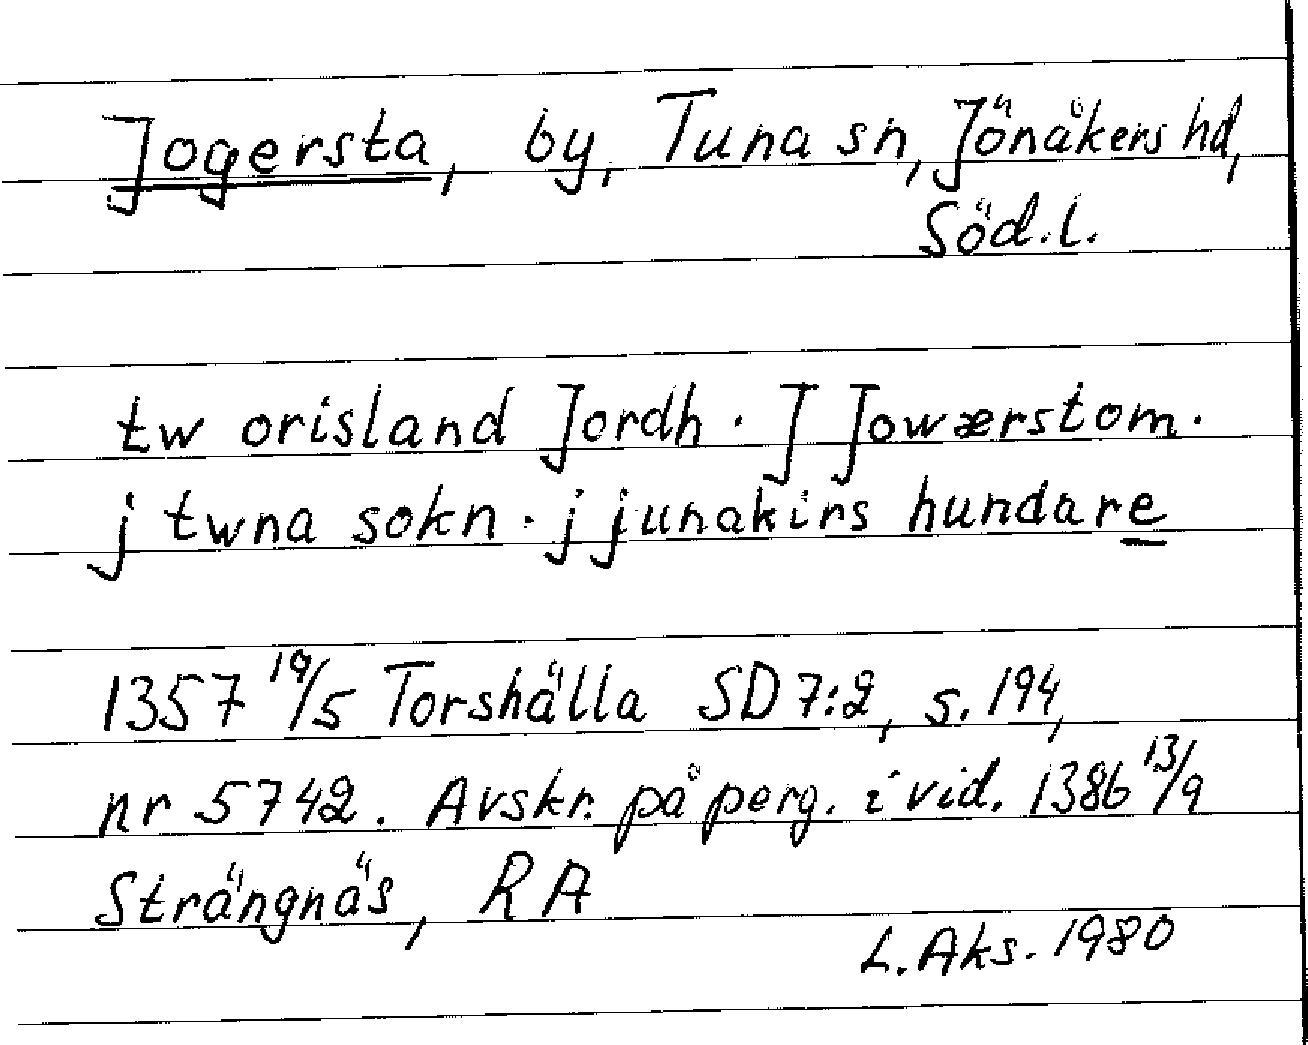 Jogersta, by, Tuna sn, Jönåkers hd,
Söd.l.
tw orisland Jordh · J Jowærstom.
j twna sokn · j junakirs hundare
1357 19/5 Torshälla SD 7:2, s. 194,
nr 5742. Avskr. på perg. i vid. 1386 13/9
Strängnäs, RA
L. Aks. 1980